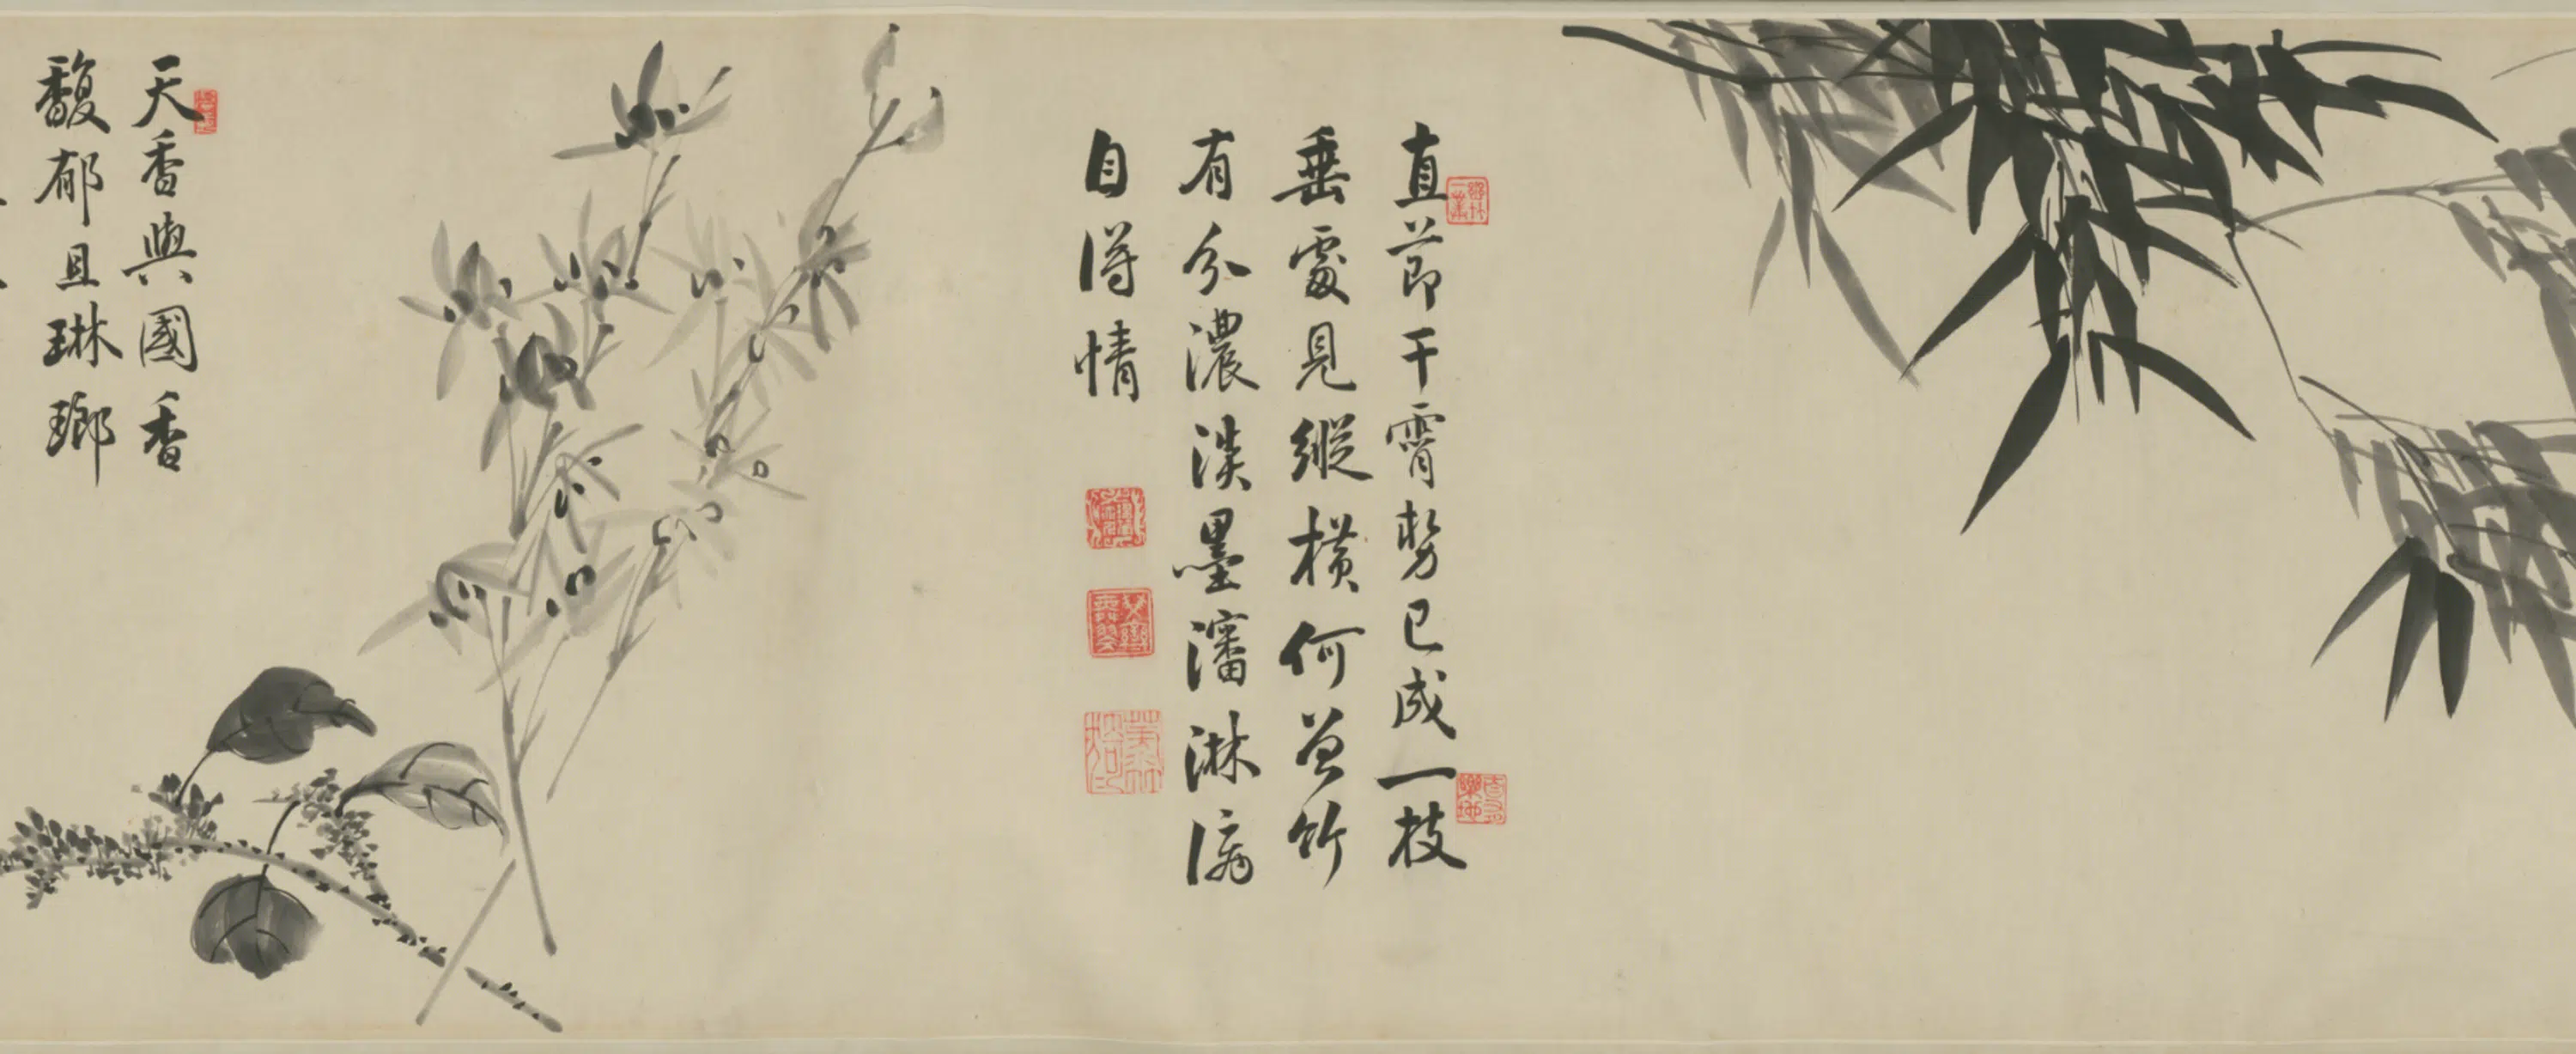 直節干霄勢已成一枝
垂處見縱橫何曾竹
有分濃淡墨瀋淋漓
自得情
天香與國香
馥郁且琳瑯